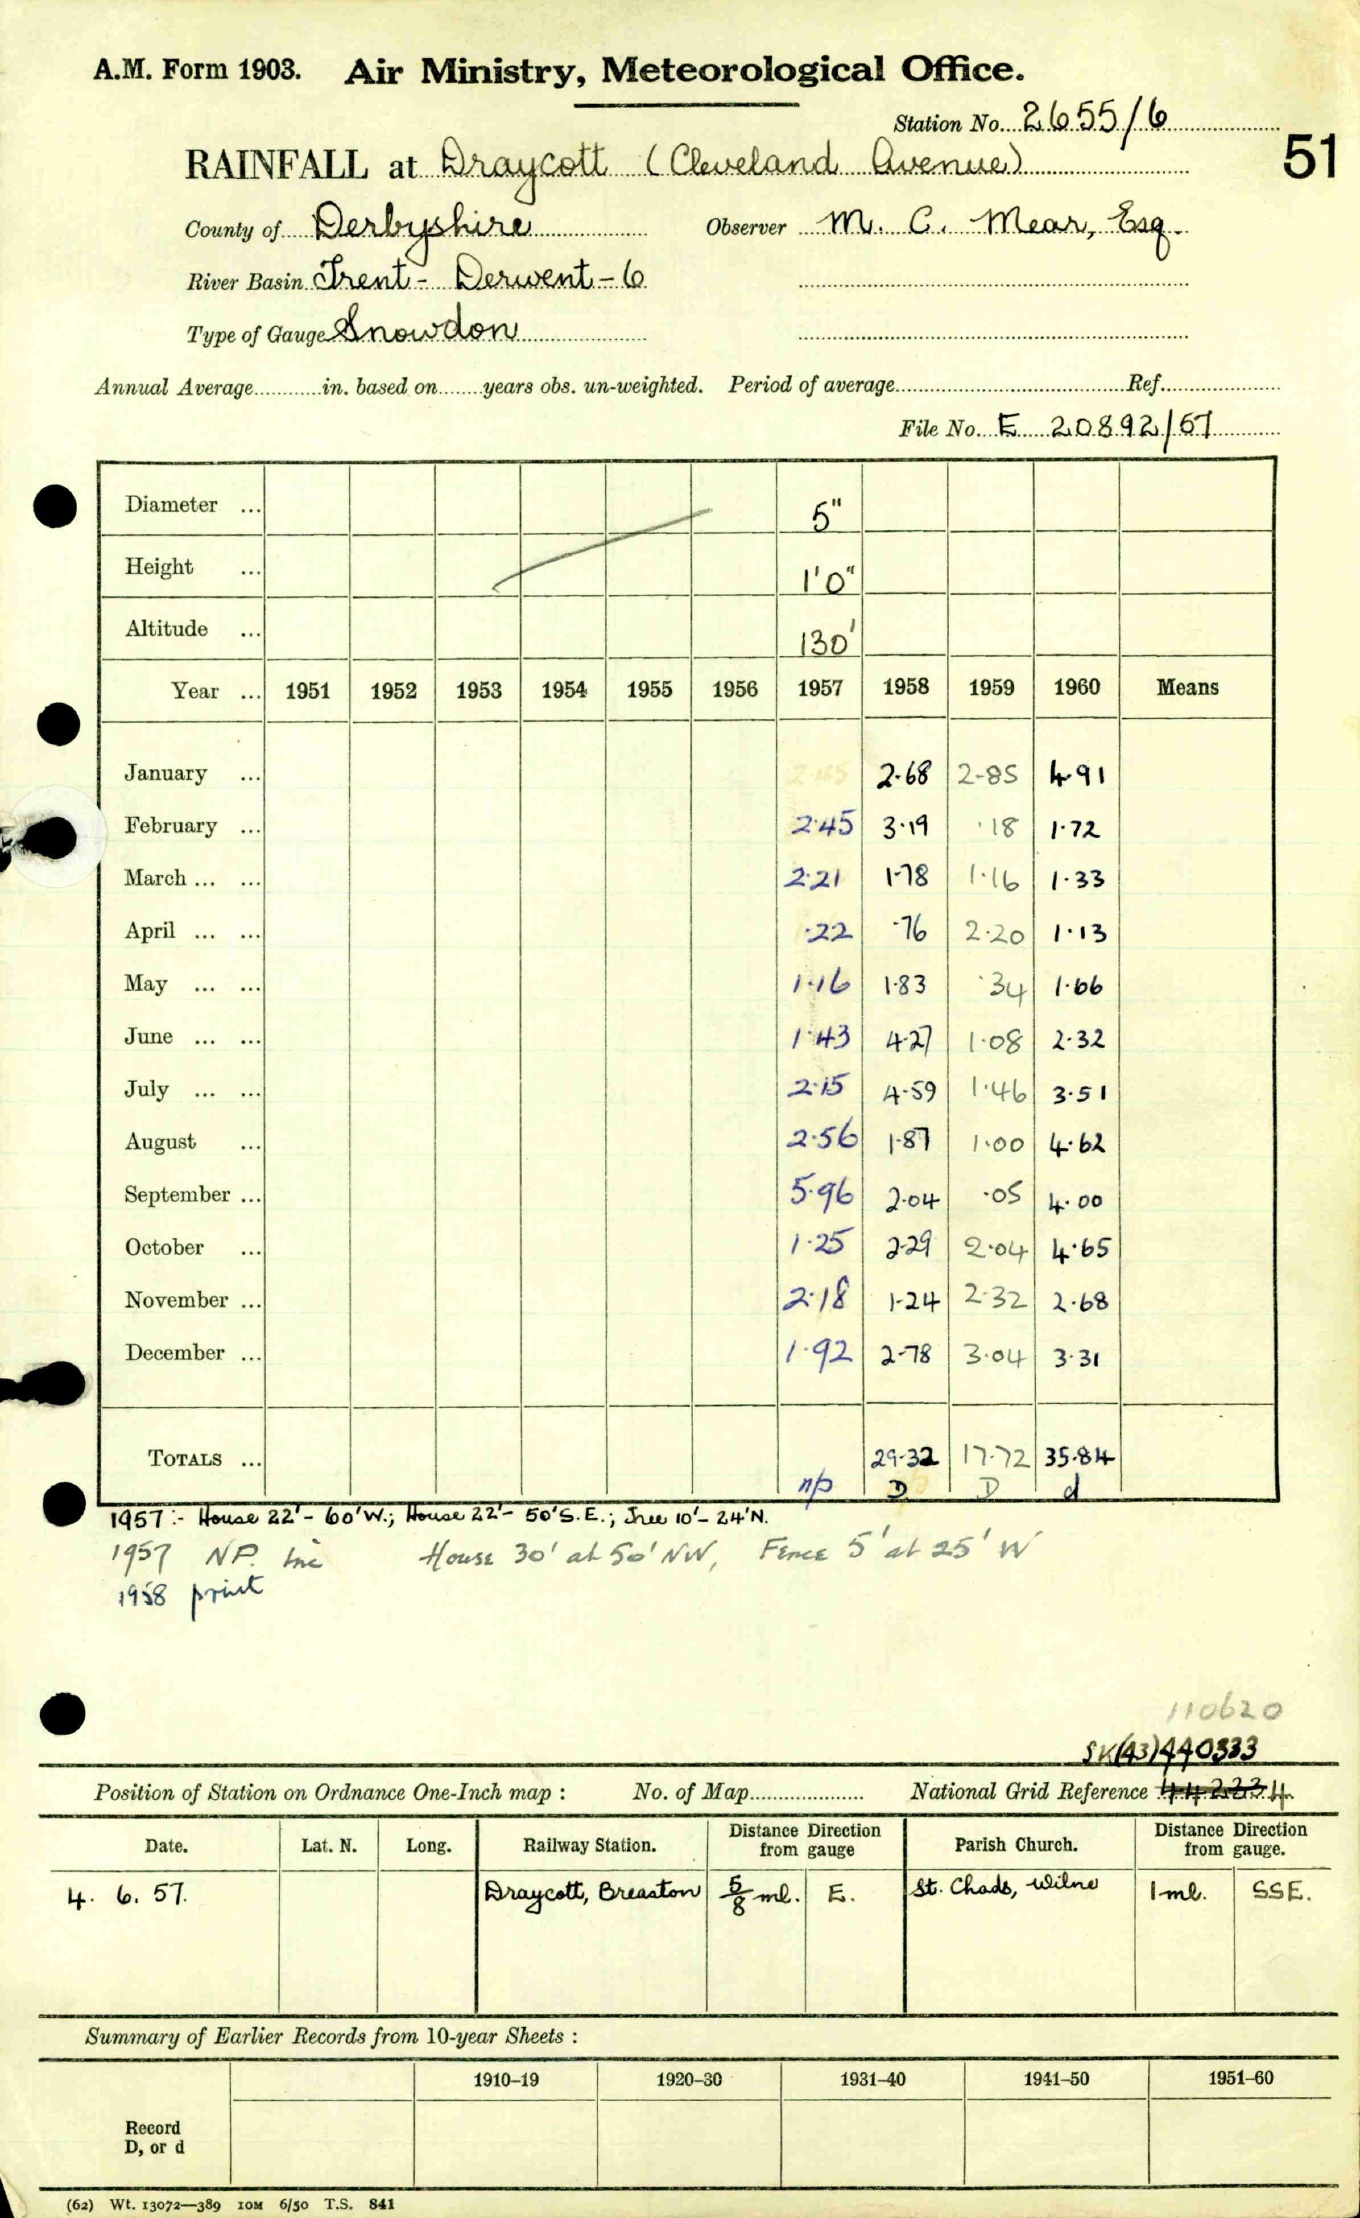 A.M. Form 1903. Air Ministry, Meteorological Office.
Station No. 2655/6
51
RAINFALL at Draycott (Cleveland Avenue)
County of Derbyshire Observer M. C. Mear, Esq.
River Basin Trent - Derwent - 6
Type of Gauge Snowdon
Annual Average............in. based on........years obs. un-weighted. Period of average.......... Ref..........
File No. E 20892/57
Diameter ... 5"
Height ... 1'0"
Altitude ... 130'
Year ... 1951 1952 1953 1954 1955 1956 1957 1958 1959 1960 Means
January ... 2.68 2.85 4.91
February ... 2.45 3.19 .18 1.72
March ... ... 2.21 1.78 1.16 1.33
April ... ... .22 .76 2.20 1.13
May ... ... 1.16 1.83 .34 1.66
June ... ... 1.43 4.27 1.08 2.32
July ... ... 2.15 4.59 1.46 3.51
August ... 2.56 1.87 1.00 4.62
September ... 5.96 2.04 .05 4.00
October ... 1.25 2.29 2.04 4.65
November ... 2.18 1.24 2.32 2.68
December ... 1.92 2.78 3.04 3.31
TOTALS ... 29.32 17.72 35.84
n/p D D d
1957:- House 22'- 60'W.; House 22'- 50'S.E.; Tree 10'- 24'N.
1957 NP. Inc House 30' at 50' NW, Fence 5' at 25' W
1958 print
110620
SK(43)440333
Position of Station on Ordnance One-Inch map : No. of Map.......... National Grid Reference
Date. Lat. N. Long. Railway Station. Distance Direction from gauge Parish Church. Distance Direction from gauge.
4. 6. 57. Draycott, Breaston 5/8 ml. E. St. Chads, Wilne 1 ml. SSE.
Summary of Earlier Records from 10-year Sheets :
1910–19 1920–30 1931–40 1941–50 1951–60
Record
D, or d
(62) Wt. 13072—389 10M 6/50 T.S. 841